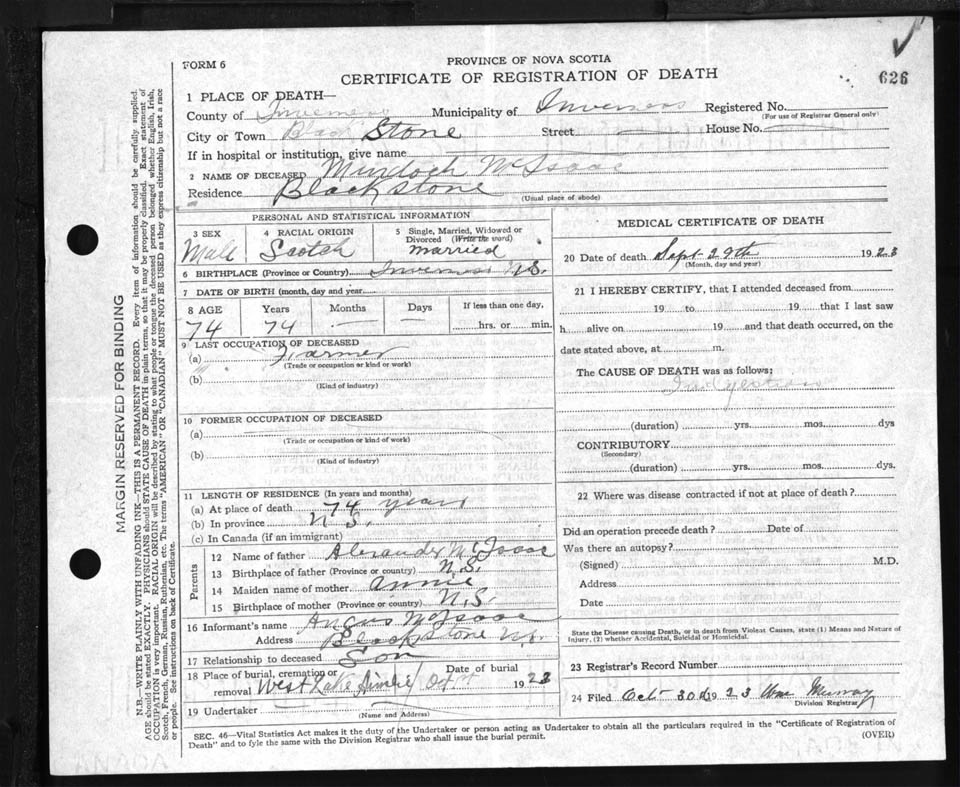 FORM 6
PROVINCE OF NOVA SCOTIA
CERTIFICATE OF REGISTRATION OF DEATH
626
1 PLACE OF DEATH—
County of Inverness Municipality of Inverness Registered No.
(For use of Registrar General only)
City or Town Black Stone Street — House No. —
If in hospital or institution, give name
2 NAME OF DECEASED Murdoch McIsaac
Residence Blackstone
(Usual place of abode)
PERSONAL AND STATISTICAL INFORMATION
3 SEX Male
4 RACIAL ORIGIN Scotch
5 Single, Married, Widowed or Divorced (Write the word) Married
6 BIRTHPLACE (Province or Country) Inverness N.S.
7 DATE OF BIRTH (month, day and year)
8 AGE Years Months Days If less than one day,
74 74 — — hrs. or min.
9 LAST OCCUPATION OF DECEASED
(a) Farmer
(Trade or occupation or kind or work)
(b)
(Kind of industry)
10 FORMER OCCUPATION OF DECEASED
(a)
(Trade or occupation or kind of work)
(b)
(Kind of industry)
11 LENGTH OF RESIDENCE (In years and months)
(a) At place of death 74 years
(b) In province N.S.
(c) In Canada (if an immigrant)
Parents
12 Name of father Alexander McIsaac
13 Birthplace of father (Province or country) N.S.
14 Maiden name of mother Annie
15 Birthplace of mother (Province or country) N.S.
16 Informant's name Angus McIsaac
Address Blackstone N.S.
17 Relationship to deceased Son
18 Place of burial, cremation or removal West Lake Ainslie Date of burial Oct 1st 1923
19 Undertaker
(Name and Address)
MEDICAL CERTIFICATE OF DEATH
20 Date of death Sept 29th 1923
(Month, day and year)
21 I HEREBY CERTIFY, that I attended deceased from
19 to 19 that I last saw
h alive on 19 and that death occurred, on the
date stated above, at m.
The CAUSE OF DEATH was as follows:
Indigestion
(duration) yrs. mos. dys
CONTRIBUTORY
(Secondary)
(duration) yrs. mos. dys.
22 Where was disease contracted if not at place of death?
Did an operation precede death? Date of
Was there an autopsy?
(Signed) M.D.
Address
Date
State the Disease causing Death, or in death from Violent Causes, state (1) Means and Nature of
Injury, (2) whether Accidental, Suicidal or Homicidal.
23 Registrar's Record Number
24 Filed Oct 30th 1923 Wm Murray
Division Registrar
SEC. 46—Vital Statistics Act makes it the duty of the Undertaker or person acting as Undertaker to obtain all the particulars required in the "Certificate of Registration of
Death" and to fyle the same with the Division Registrar who shall issue the burial permit.
(OVER)
MARGIN RESERVED FOR BINDING
N.B.—WRITE PLAINLY WITH UNFADING INK—THIS IS A PERMANENT RECORD. Every item of information should be carefully supplied.
AGE should be stated EXACTLY. PHYSICIANS should STATE CAUSE OF DEATH in plain terms, so that it may be properly classified. Exact statement of
OCCUPATION is very important. RACIAL ORIGIN will be described by stating to what people or tongue the deceased person belonged whether English, Irish,
Scotch, French, German, Russian, Ruthenian, etc. The terms "AMERICAN" OR "CANADIAN" MUST NOT BE USED as they express citizenship but not a race
or people. See instructions on back of Certificate.